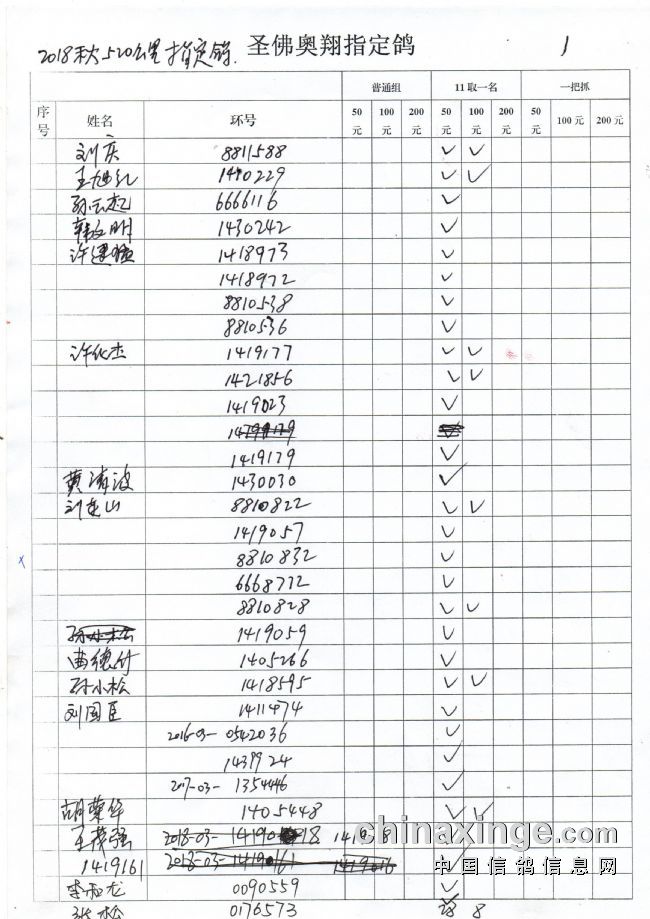 2018秋520公里指定鸽 圣佛奥翔指定鸽 1
普通组 11取一名 一把抓
序号 姓名 环号 50元 100元 200元 50元 100元 200元 50元 100元 200元
刘庆 8811588 ✓ ✓
王旭红 1410229 ✓ ✓
孙云起 6666116 ✓
韩文明 1430242 ✓
许建 1418973 ✓
1418972 ✓
8810538 ✓
8810536 ✓
许化杰 1419177 ✓ ✓
1421856 ✓ ✓
1419023 ✓
1419179 ✓
黄清波 1430030 ✓
刘金山 8810822 ✓ ✓
1419057 ✓
8810832 ✓
6668772 ✓
8810828 ✓ ✓
孙小松 1419059 ✓
曲德付 1405266 ✓
孙小松 1418595 ✓ ✓
刘国臣 1411474 ✓
2016-03- 0542036 ✓
1439924 ✓
2017-03- 1354446 ✓
胡荣华 1405448 ✓ ✓
王茂强 2018-03-
1419161 2018-03- 1419016 ✓
chinaxinge.com
中国信鸽信息网
李 龙 0090559 ✓
张松 0176573 8